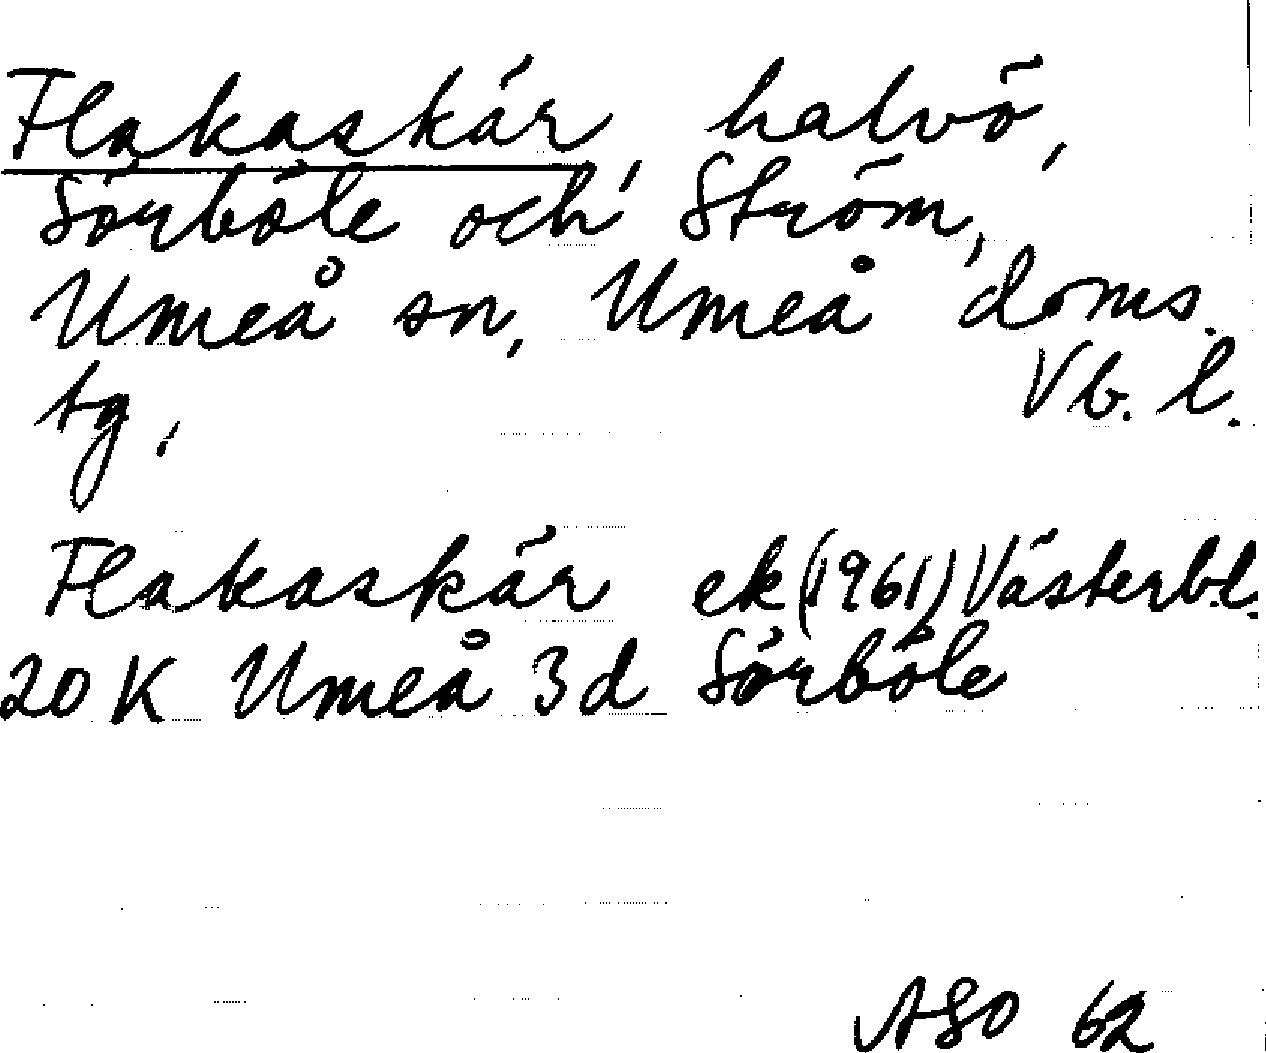 Flakaskär, halvö,
Sörböle och Ström,
Umeå sn, Umeå doms.
tg,
Vb. l.
Flakaskär ek (1961) Västerb.l.
20 K Umeå 3d Sörböle
ASO 62